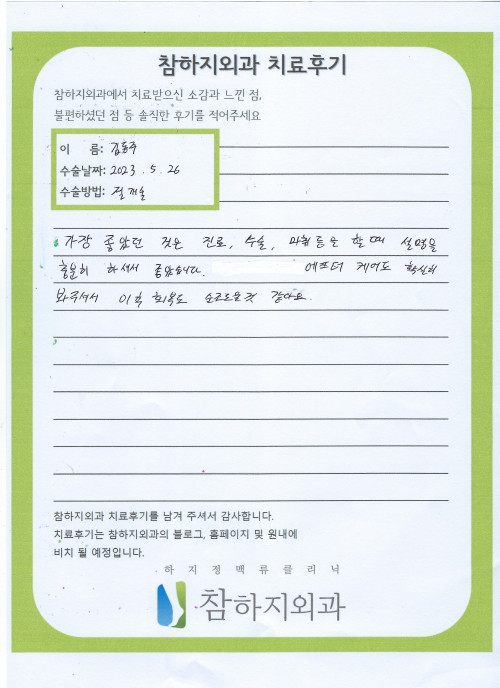 참하지외과 치료후기
참하지외과에서 치료받으신 소감과 느낀 점,
불편하셨던 점 등 솔직한 후기를 적어주세요
이 름: 김동주
수술날짜: 2023. 5. 26
수술방법: 절제술
가장 좋았던 것은 진료, 수술, 마취등을 할 때 설명을
충분히 하셔서 좋았습니다. 에프터 케어도 확실히
봐주셔서 이후 회복도 순조로운것 같아요.
참하지외과 치료후기를 남겨 주셔서 감사합니다.
치료후기는 참하지외과의 블로그, 홈페이지 및 원내에
비치 될 예정입니다.
하지정맥류클리닉
참하지외과